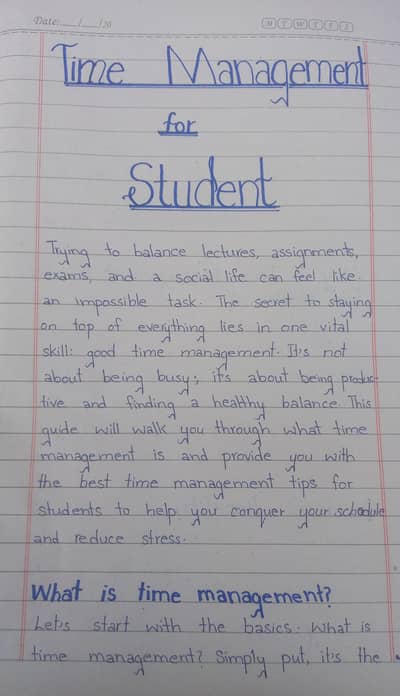 Date:___/___/20 M T W T F S S
Time Management
for
Student
Trying to balance lectures, assignments,
exams, and a social life can feel like
an impossible task. The secret to staying
on top of everything lies in one vital
skill: good time management. It's not
about being busy; it's about being produc-
tive and finding a healthy balance. This
guide will walk you through what time
management is and provide you with
the best time management tips for
students to help you conquer your schedule
and reduce stress.
What is time management?
Let's start with the basics. What is
time management? Simply put, it's the